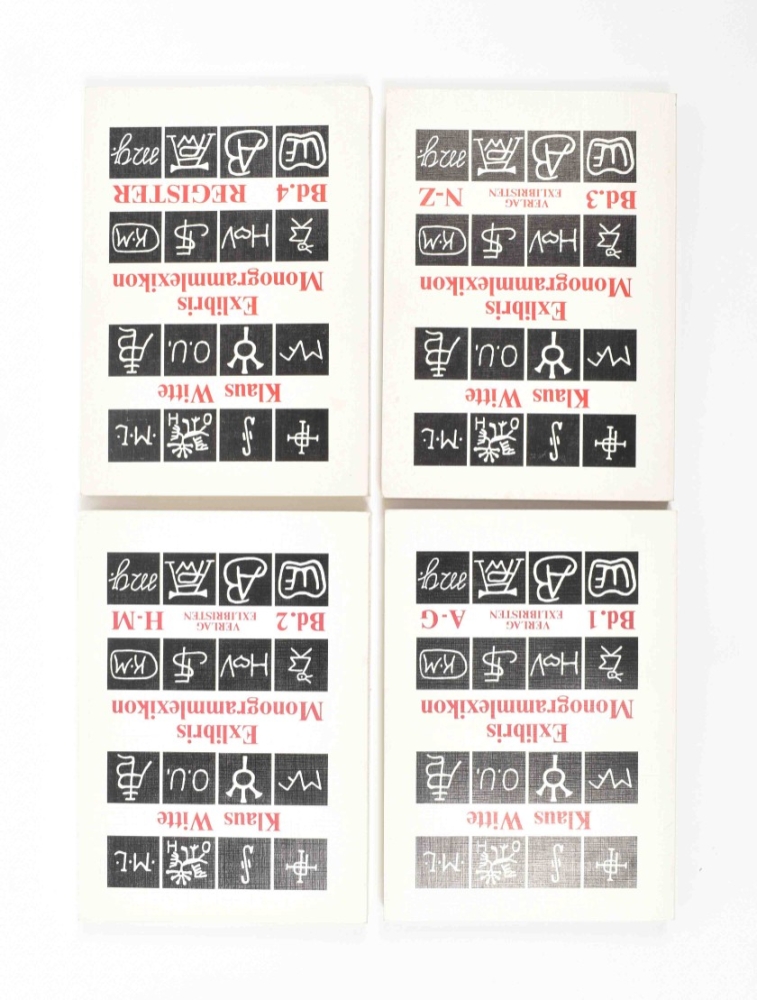 M.L.
Klaus Witte
O.U.
Exlibris
Monogrammlexikon
K·M
Bd.1 VERLAG EXLIBRISTEN A-G
M.L.
Klaus Witte
O.U.
Exlibris
Monogrammlexikon
K·M
Bd.2 VERLAG EXLIBRISTEN H-M
M.L.
Klaus Witte
O.U.
Exlibris
Monogrammlexikon
K·M
Bd.3 VERLAG EXLIBRISTEN N-Z
M.L.
Klaus Witte
O.U.
Exlibris
Monogrammlexikon
K·M
Bd.4 REGISTER